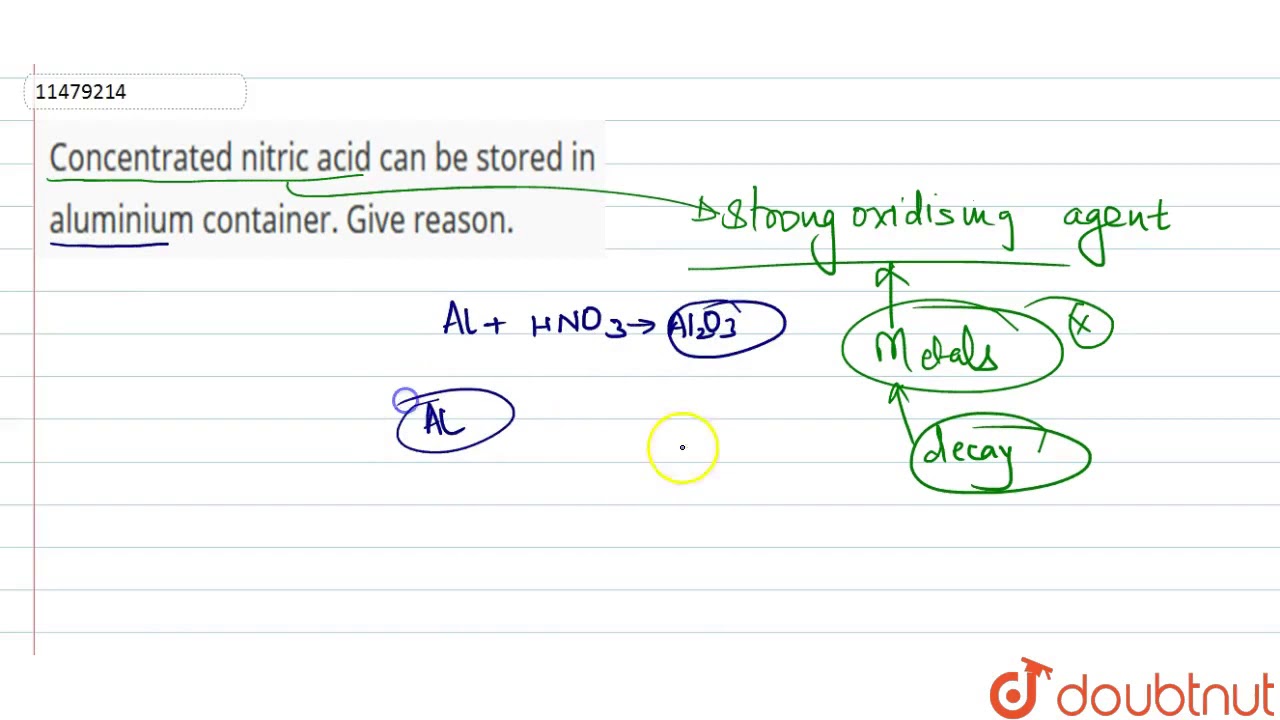 11479214
Concentrated nitric acid can be stored in
aluminium container. Give reason.
Strong oxidising agent
Al + HNO3 → Al2O3
Metals
x
Al
decay
doubtnut